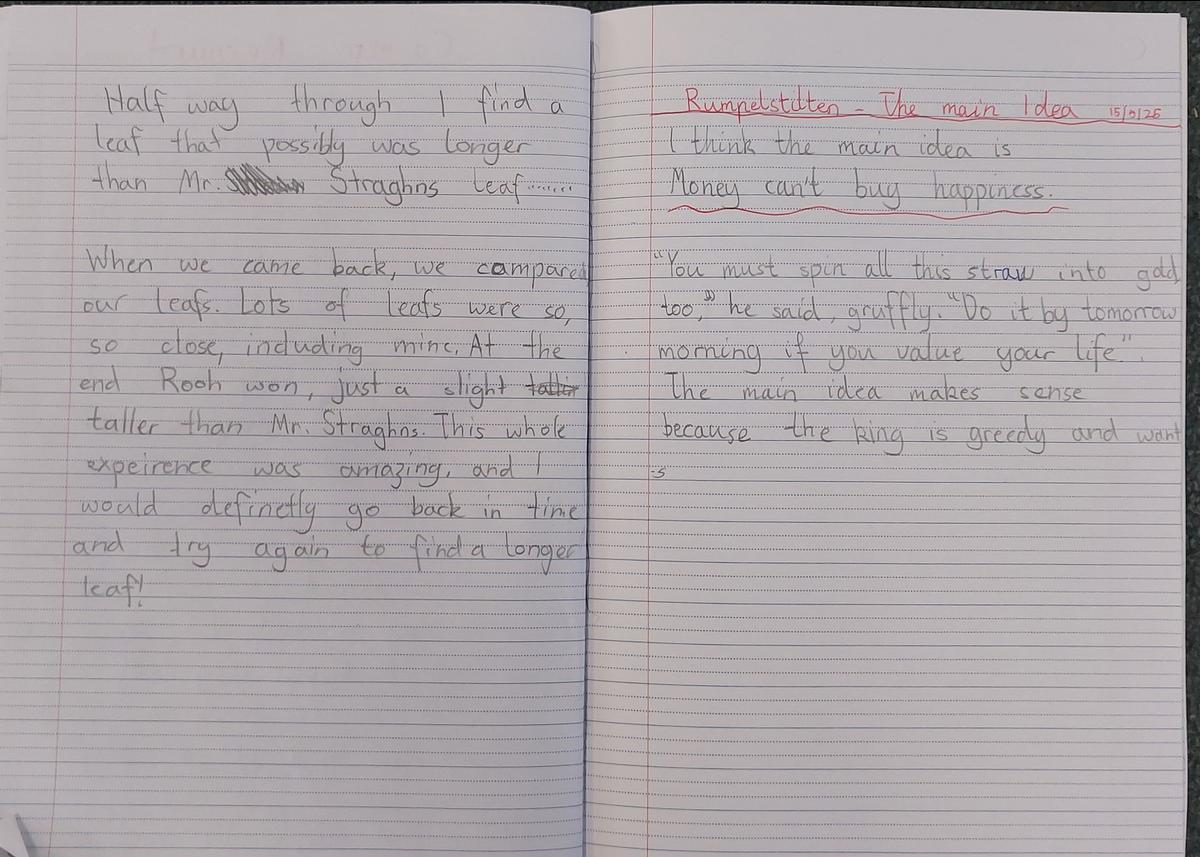 Half way through I find a
leaf that possibly was longer
than Mr. Straghns leaf.......
When we came back, we compared
our leafs. Lots of leafs were so,
so close, including mine. At the
end Rooh won, just a slight taller
taller than Mr. Straghns. This whole
expeirence was amazing, and I
would definetly go back in time
and try again to find a longer
leaf!
Rumpelstilten - The main Idea
I think the main idea is
Money can't buy happiness.
"You must spin all this straw into gold
too," he said, gruffly. "Do it by tomorrow
morning if you value your life".
The main idea makes sense
because the king is greedy and want
-s